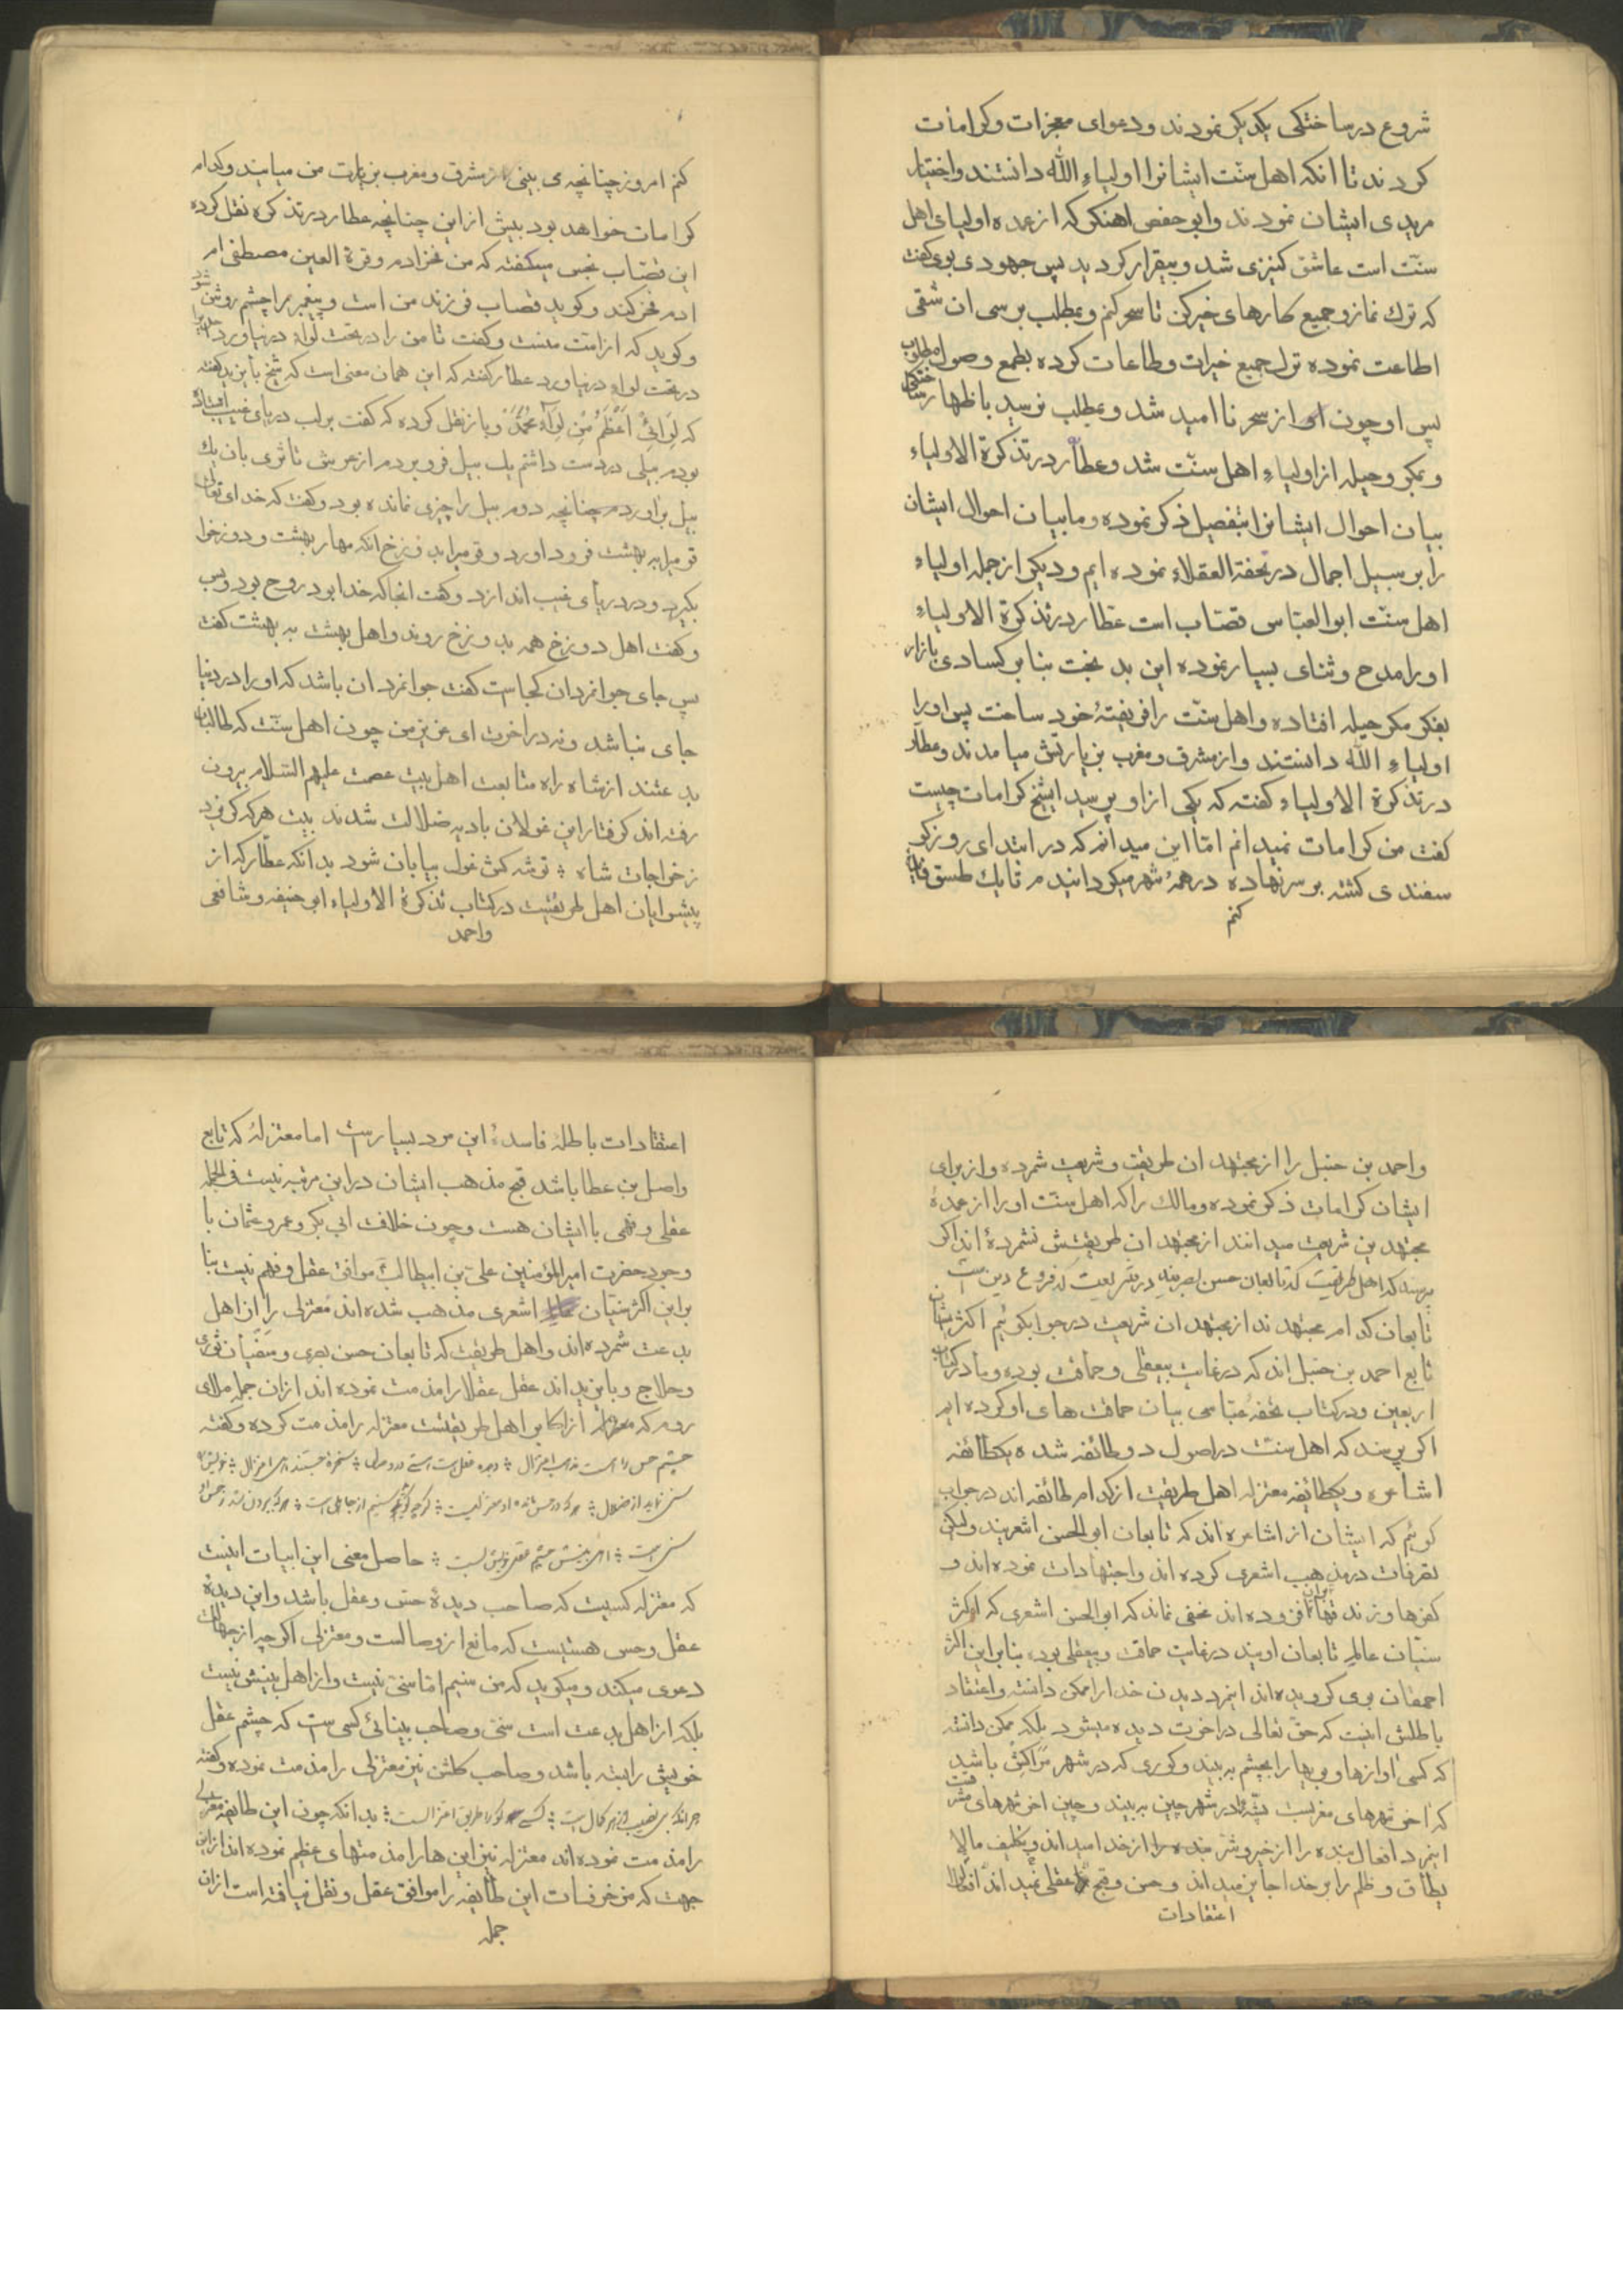 شروع در ساختکی یکدیکر نمودند و دعوای معجزات و کرامات
کردند تا انکه اهل سنّت ایشانرا اولیاءِ الله دانستند و اختیار
مریدی ایشان نمودند و ابو حفص اهنکر که از عمده اولیای اهل
سنّت است عاشق کنیزی شد و بیقرار کردید پس جهودی بوی کفت
که ترك نماز و جمیع کارهای خیر کن تا سحر کنم و بمطلب برسی ان شقی
اطاعت نموده ترك جمیع خیرات و طاعات کرده بطمع وصول مطلوب
پس او چون از سحر نا امید شد و بمطلب نرسید باظهار ساختکی
و بمکر و حیله از اولیاءِ اهل سنّت شد و عطّار در تذکرة الاولیاء
بیان احوال ایشانرا بتفصیل ذکر نموده و ما بیان احوال ایشان
را بر سبیل اجمال در تحفة العقلاء نموده ایم و دیکر از جمله اولیاءِ
اهل سنّت ابو العبّاس قصّاب است عطّار در تذکرة الاولیاءِ
او را مدح و ثنای بسیار نموده این بد بخت بنا بر کسادی بازار
بفکر مکر و حیله افتاده و اهل سنّت را فریفتهٔ خود ساخت پس او را
اولیاءِ الله دانستند و از مشرق و مغرب بزیارتش میامدند و عطّار
در تذکرة الاولیاء کفته که یکی از او پرسید ایشیخ کرامات چیست
کفت من کرامات نمیدانم امّا این میدانم که در ابتدای روز کو
سفندی کشته بر سر نهاده در همهٔ شهر میکردانیدم تا یك طسق فایده
کنم
کنم امروز چنانچه می بینی از مشرق و مغرب بزیارت من میایند و کدام
کرامات خواهد بود بیش از این چنانچه عطار در تذکره نقل کرده
این قصّاب نجس میکفته که من فخر ادم و قرة العین مصطفی ام
ادم فخر کند و کوید قصاب فرزند من است و پیغمبر را چشم روشن شود
و کوید که از امت منست و کفت تا من را در تحت لواءِ در نیاورد
در تحت لواءِ در نیاورد عطار کفته که این همان معنی است که شیخ بایزید کفته
که لِوَائِیْ اَعْظَمُ مِنْ لِوَاءِ مُحَمَّدٍ و باز نقل کرده که کفت بر لب دریای غیب افتاده
بودم بیلی در دست داشتم یك بیل فرو بردم از عرش تا ثری بان یك
بیل براوردم چنانچه دوم بیل را چیزی نمانده بود و کفت که خدای تعالی
قومیرا به بهشت فرود اورد و قومیرا بدوزخ انکه مهار بهشت و دوزخ را
بکیرد و در دریای غیب اندازد و کفت انجا که خدا بود روح بود و بس
و کفت اهل دوزخ همه بدوزخ روند و اهل بهشت به بهشت کفت
پس جای جوانمردان کجاست کفت جوانمرد ان باشد که او را در دنیا
جای نباشد و نه در اخرت ای عزیز من چون اهل سنّت که طالبان
بدعتند از شاه راه متابعت اهل بیت عصمت علیهم السّلام بیرون
رفته اند کرفتار این غولان بادیه ضلالت شدند بیت هر که کردد
ز خواجات شاه ؞ توشه کش غول بیابان شود بدانکه عطّار که از
پیشوایان اهل طریقتست در کتاب تذکرة الاولیاء ابو حنیفه و شافعی
واحمد
واحمد بن حنبل را از مجتهدان طریقت و شریعت شمرده و از برای
ایشان کرامات ذکر نموده و مالك را که اهل سنّت او را از عمدهٔ
مجتهدین شریعت میدانند از مجتهدان طریقتش نشمرده اند اکر
پرسند که اهل طریقت که تابعان حسن بصریند در شریعت که فروع دین است
تابعان کدام مجتهدند از مجتهدان شریعت در جواب کوئیم اکثر ایشان
تابع احمد بن حنبل اند که در غایت بیعقلی و حماقت بوده و ما در کتاب
اربعین و در کتاب تحفهٔ عبّاسی بیان حماقت های او کرده ایم
اکر پرسند که اهل سنّت در اصول دو طائفه شده یکطائفه
اشاعره و یکطائفه معتزله اهل طریقت از کدام طائفه اند در جواب
کوئیم که ایشان از اشاعره اند که تابعان ابو الحسن اشعریند ولیکن
تصرفات در مذهب اشعری کرده اند و اجتهادات نموده اند و
کفرها و زندقها بران افزوده اند مخفی نماند که ابو الحسن اشعری که اکثر
سنّیان عالم تابعان اویند در غایت حماقت و بیعقلی بوده بنابر این اکثر
احمقان بوی کرویده اند اینمرد دیدن خدا را ممکن دانسته و اعتقاد
باطلش اینست که حقّ تعالی در اخرت دیده میشود بلکه ممکن دانسته
که کسی اوازها و بویها را بچشم به بیند و کوری که در شهر مراکش باشد
که اخر شهرهای مغربست پشّهٔ را در شهر چین به بیند و چین اخر شهرهای مشرقست
اینمرد افعال بنده را از خیر و شر از خدا میداند و تکلیف مالا
یطاق و ظلم را بر خدا جایز میداند و حسن و قبح عقلی نمیداند
اعتقادات
اعتقادات باطلهٔ فاسدهٔ این مرد بسیارست اما معتزله که تابع
واصل بن عطا باشد قبح مذهب ایشان در این مرتبه نیست فی الجمله
عقلی و فهمی با ایشان هست و چون خلافت ابی بکر و عمر و عثمان با
وجود حضرت امیر المؤمنین علی بن ابیطالب موافق عقل و فهم نیست بنا
بر این اکثر سنّیان اشعری مذهب شده اند معتزلی را از اهل
بدعت شمرده اند و اهل طریقت که تابعان حسن بصری و سفیان ثوری
و حلاج و بایزید اند عقل عقلا را مذمت نموده اند از ان جمله ملای
روم که از اکابر اهل طریقتست معتزله را مذمت کرده و کفته
چشم حس را هست مذهب اعتزال ؞ دیده عقل است سنّی در وصال ؞ سخرهٔ حسّند اهل اعتزال ؞ خویش را
سنّی نمایند از ضلال ؞ هر که در حس ماند او معتزلیست ؞ کرچه کوید سنّیم از جاهلی است ؞ هر که بیرون شد ز حس او
سنّی است ؞ اهل بینش چشم عقل خویش بست ؞ حاصل معنی این ابیات اینست
که معتزله کسیست که صاحب دیدهٔ حسّ و عقل باشد و این دیدهٔ
عقل و حس هستیست که مانع از وصالست و معتزلی اکر چه از جهالت
دعوی میکند و میکوید که من سنیم امّا سنّی نیست و از اهل بینش نیست
بلکه از اهل بدعت است سنّی و صاحب بینائی کسی ست که چشم عقل
خویش را بسته باشد و صاحب کلشن نیز معتزلی را مذمت نموده و کفته
چو اکمه بی نصیب از هر کمال است ؞ کسی کو را طریق اعتزالست ؞ بدانکه چون این طایفه معتزلی
را مذمت نموده اند معتزله نیز این ها را مذمتهای عظیم نموده اند از این
جهت که مزخرفات این طایفه را موافق عقل و نقل نیافته است از ان
جمله